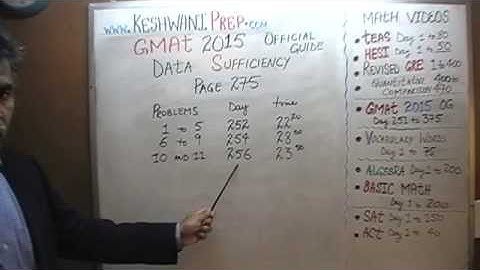 www.KESHWANIPREP.com
GMAT 2015 OFFICIAL GUIDE
DATA SUFFICIENCY
PAGE 275
PROBLEMS Day time
1 to 5 252 22 20
6 to 9 254 28 50
10 AND 11 256 23 50
MATH VIDEOS
TEAS Day 1 to 80
HESI Day 1 to 50
REVISED GRE 1 to 400
QUANTITATIVE COMPARISON 400 to 470
GMAT 2015 OG
Day 251 to 375
VOCABULARY WORDS
Day 1 to 75
ALGEBRA Day 1 to 200
BASIC MATH
Day 1 to 200
SAT Day 1 to 150
ACT Day 1 to 40